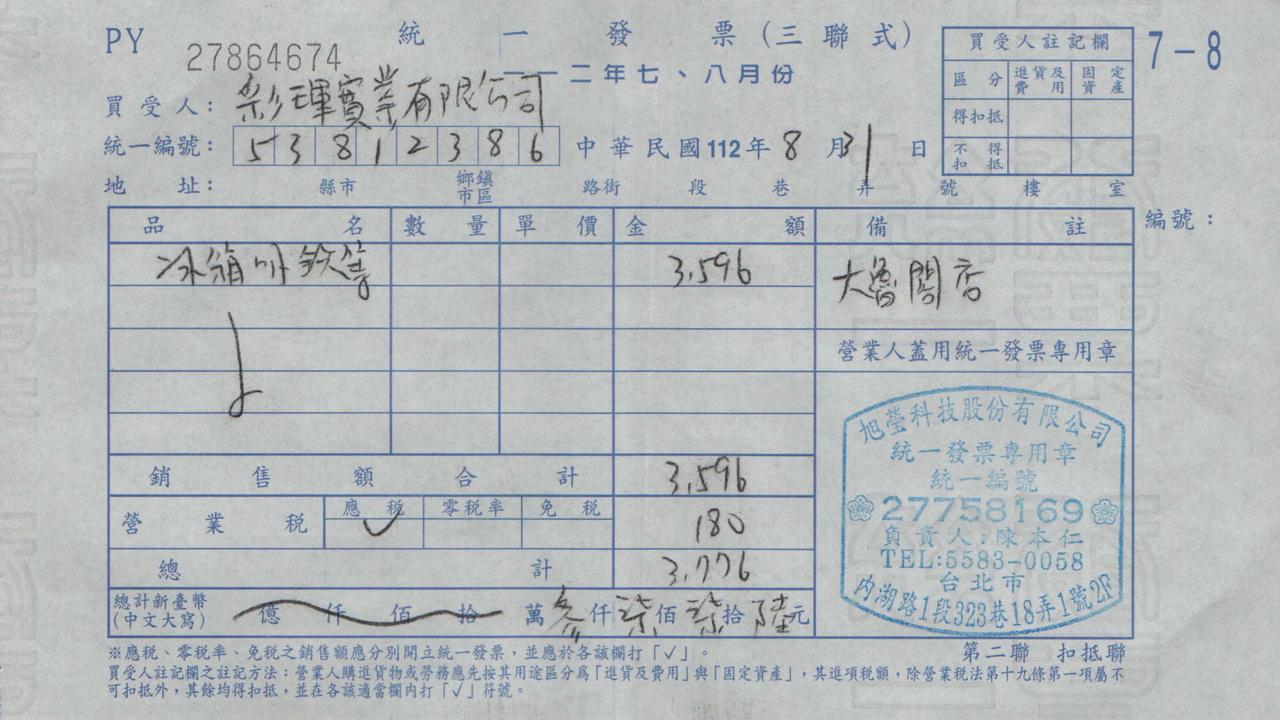 PY 27864674
統一發票(三聯式)
一一二年七、八月份
7-8
買受人註記欄
區分 進貨及費用 固定資產
得扣抵
不得扣抵
買受人:彩琿實業有限公司
統一編號:53812386 中華民國112年8月31日
地址: 縣市 鄉鎮市區 路街 段 巷 弄 號 樓 室
編號:
品名 數量 單價 金額 備註
冰箱 3,596 大魯閣店
營業人蓋用統一發票專用章
銷售額合計 3,596
營業税 應税 ✓ 零税率 免税 180
總計 3,776
總計新臺幣(中文大寫) 億仟佰拾萬參仟柒佰柒拾陸元
旭瑩科技股份有限公司
統一發票專用章
統一編號
27758169
負責人:陳本仁
TEL:5583-0058
台北市
內湖路1段323巷18弄1號2F
※應税、零税率、免税之銷售額應分別開立統一發票,並應於各該欄打「✓」。
第二聯 扣抵聯
買受人註記欄之註記方法:營業人購進貨物或勞務應先按其用途區分為「進貨及費用」與「固定資產」,其進項税額,除營業税法第十九條第一項屬不
可扣抵外,其餘均得扣抵,並在各該適當欄內打「✓」符號。